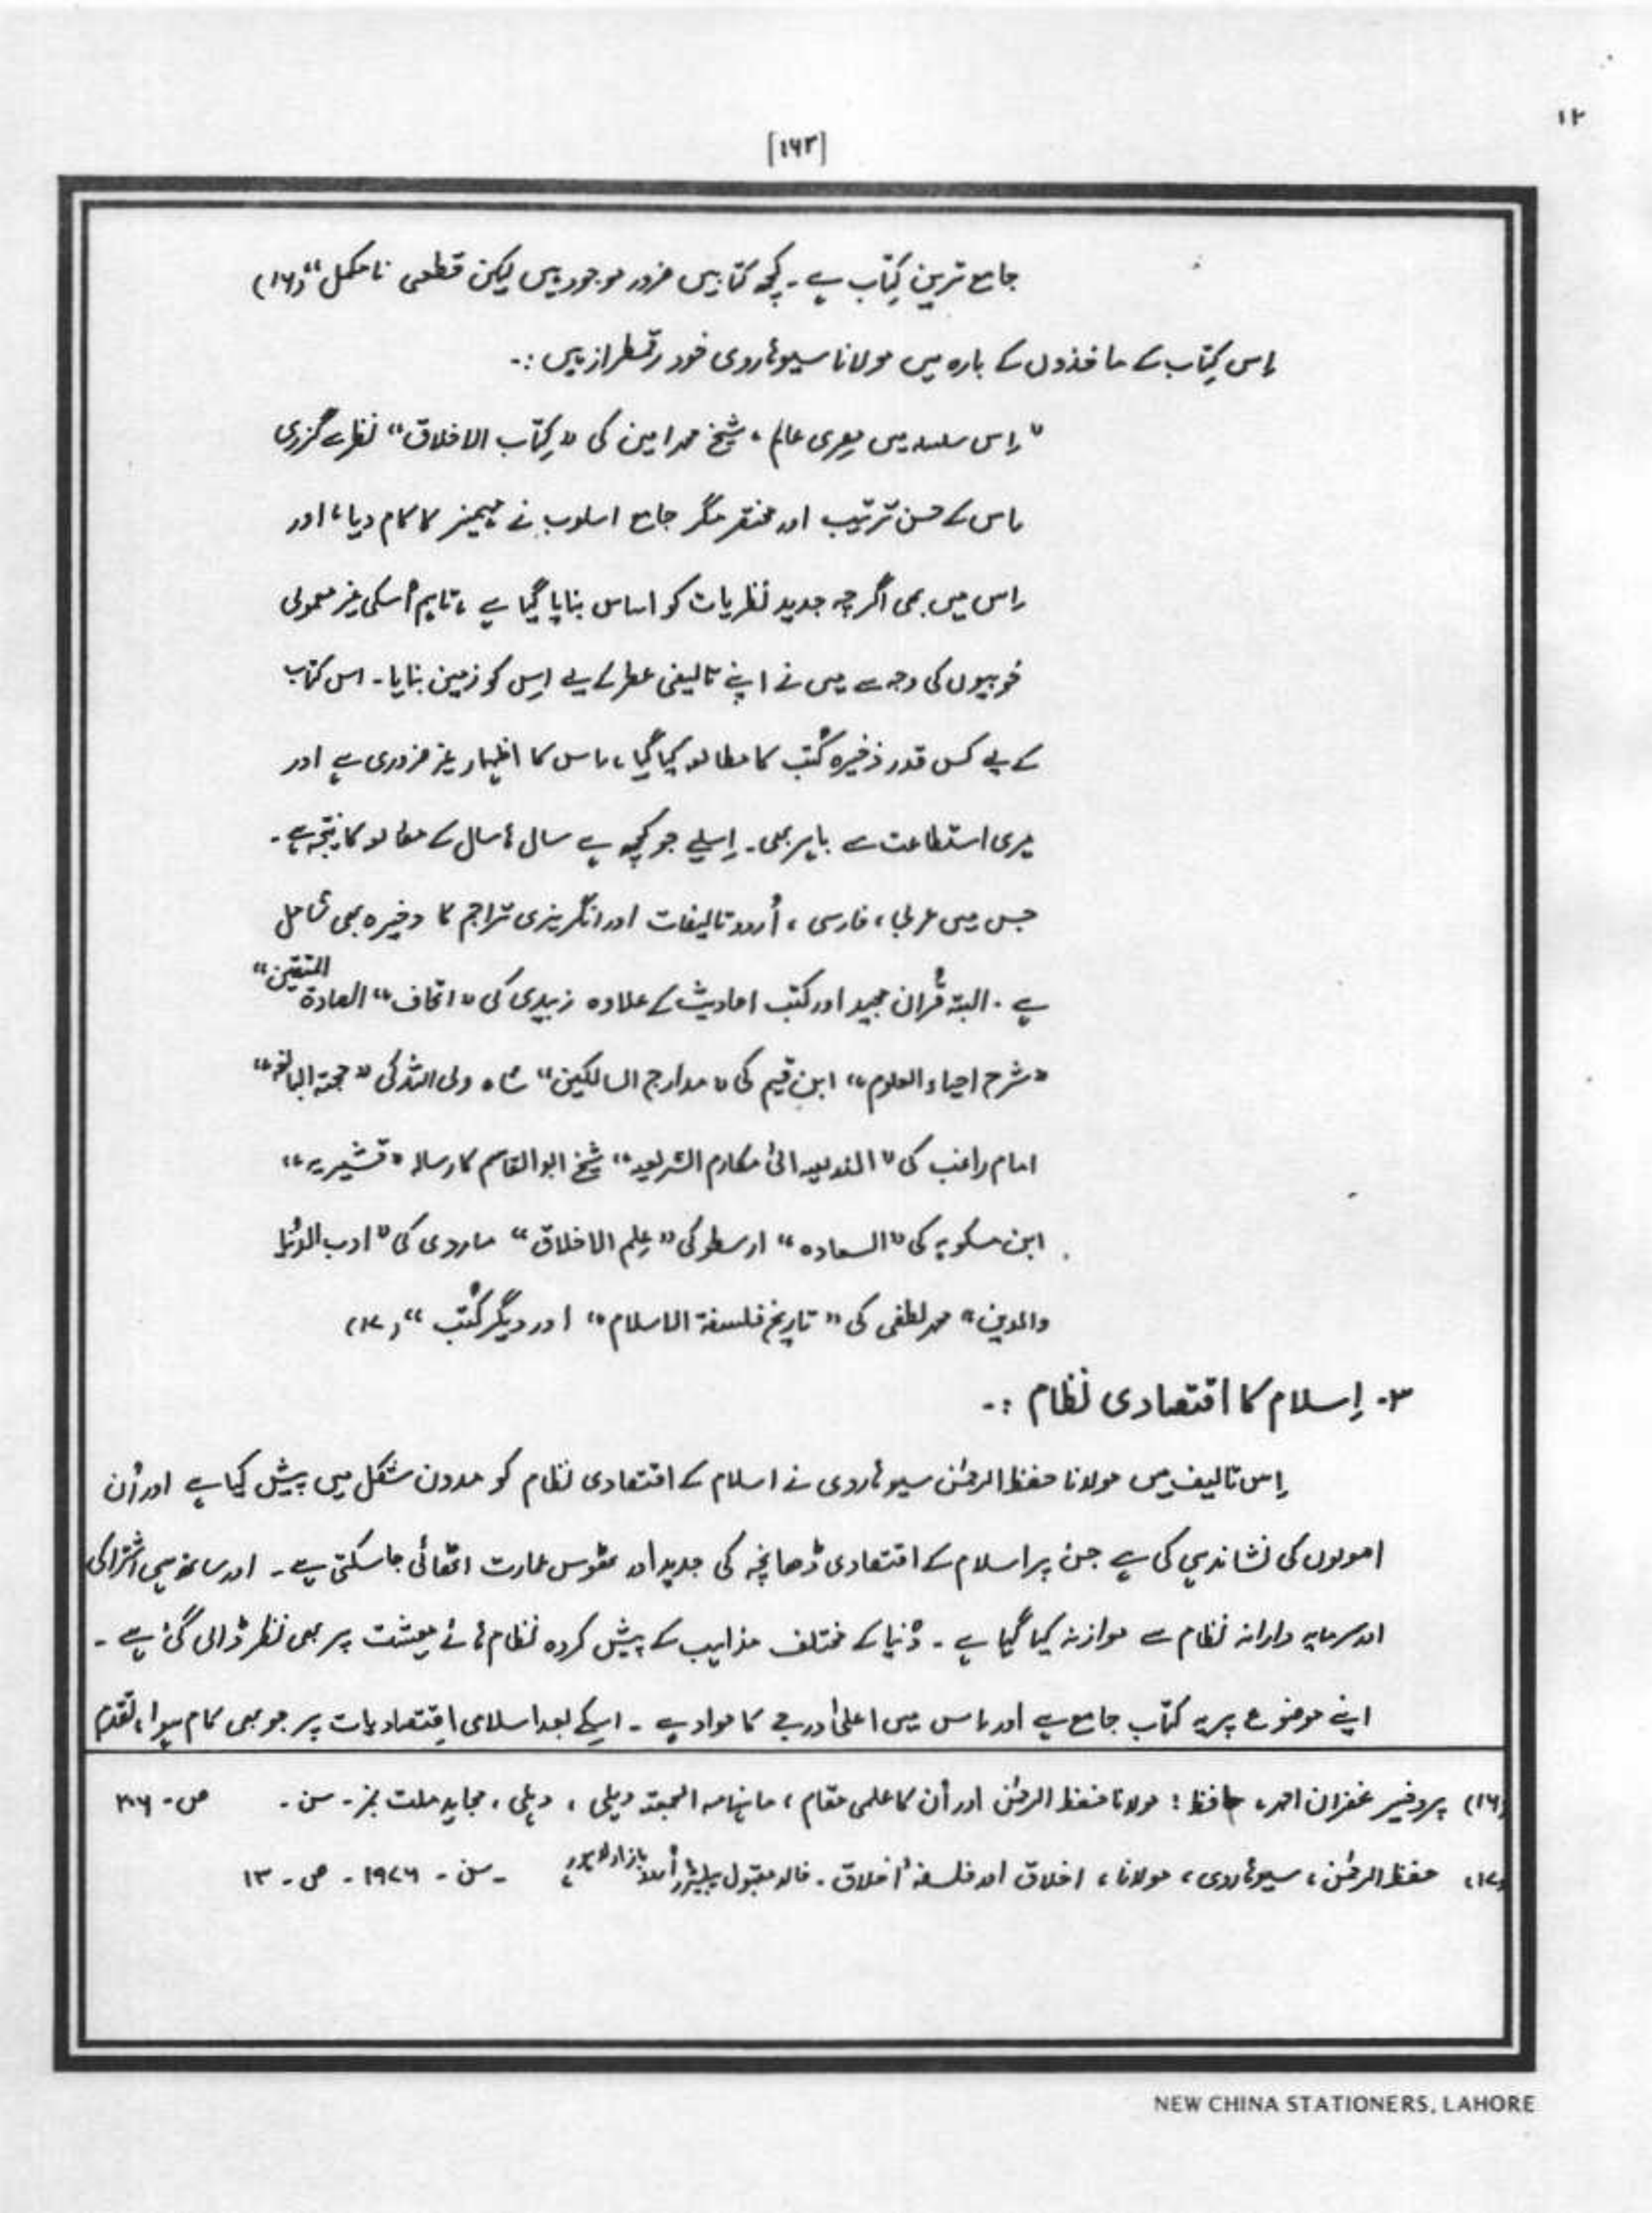 ۱۲
[۱۶۲]
جامع ترین کتاب ہے۔ کچھ کتابیں ضرور موجود ہیں لیکن قطعی نا مکمل“ (۱۶)
اِس کِتاب کے ماخذوں کے بارہ میں مولانا سیوہاروی خود رقمطراز ہیں :۔
”اِس سلسلہ میں مِصری عالم، شیخ محمد امین کی ”کِتاب الاخلاق“ نظر سے گزری
اس کے حسن ترتیب اور مختصر مگر جامع اسلوب نے مہمیز کا کام دیا، اور
اِس میں بھی اگرچہ جدید نظریات کو اساس بنایا گیا ہے، تاہم اُسکی غیر معمولی
خوبیوں کی وجہ سے میں نے اپنے تالیفی عطر کے لیے اِس کو زمین بنایا۔ اس کتاب
کے لیے کس قدر ذخیرہ کُتب کا مطالعہ کیا گیا، اس کا اظہار غیر ضروری ہے اور
میری استطاعت سے باہر بھی۔ اِسلیے جو کچھ ہے سال ہا سال کے مطالعہ کا نتیجہ ہے۔
جس میں عربی، فارسی، اُردو تالیفات اور انگریزی تراجم کا ذخیرہ بھی شامل
ہے۔ البتہ قُرآن مجید اور کتب احادیث کے علاوہ زبیدی کی ”اتحاف“ السادۃ المتقین“
”شرح احیاء العلوم“، ابنِ قیم کی ”مدارج السالکین“ شاہ ولی اللہ کی ”حجتہ البالغہ“
امام راغب کی ”الذریعہ الیٰ مکارم الشریعہ“ شیخ ابو القاسم کا رسالہ ”قشیریہ“،
ابن مسکویہ کی ”السعادہ“ ارسطو کی ”عِلم الاخلاق“ ماوردی کی ”ادب الدُنیا
والدین“ محمد لطفی کی ”تاریخ فلسفۃ الاسلام“ اور دیگر کُتب“ (۱۷)
۳۔ اِسلام کا اقتصادی نظام :۔
اِس تالیف میں مولانا حفظ الرحمٰن سیوہاروی نے اسلام کے اقتصادی نظام کو مدون شکل میں پیش کیا ہے اور اُن
اصولوں کی نشاندہی کی ہے جن پر اسلام کے اقتصادی ڈھانچہ کی جدید اور ٹھوس عمارت اٹھائی جاسکتی ہے۔ اور ساتھ ہی اشتراکی
اور سرمایہ دارانہ نظام سے موازنہ کیا گیا ہے۔ دُنیا کے مختلف مذاہب کے پیش کردہ نظام ہائے معیشت پر بھی نظر ڈالی گئی ہے۔
اپنے موضوع پر یہ کتاب جامع ہے اور اس میں اعلیٰ درجے کا مواد ہے۔ اِسکے بعد اسلامی اِقتصادیات پر جو بھی کام ہوا، تقدم
(۱۶) پروفیسر غفران احمد، حافظ : مولانا حفظ الرحمٰن اور اُن کا علمی مقام، ماہنامہ الجمعیتہ دہلی، دہلی، مجاہد ملت نمبر۔ سن۔ ص۔ ۳۰۶
(۱۷) حفظ الرحمٰن، سیوہاروی، مولانا، اخلاق اور فلسفہٴ اخلاق۔ خالد مقبول پبلیشرز اُردو بازار لاہور، ۔ سن۔ ۱۹۷۶۔ ص۔ ۱۳
NEW CHINA STATIONERS, LAHORE